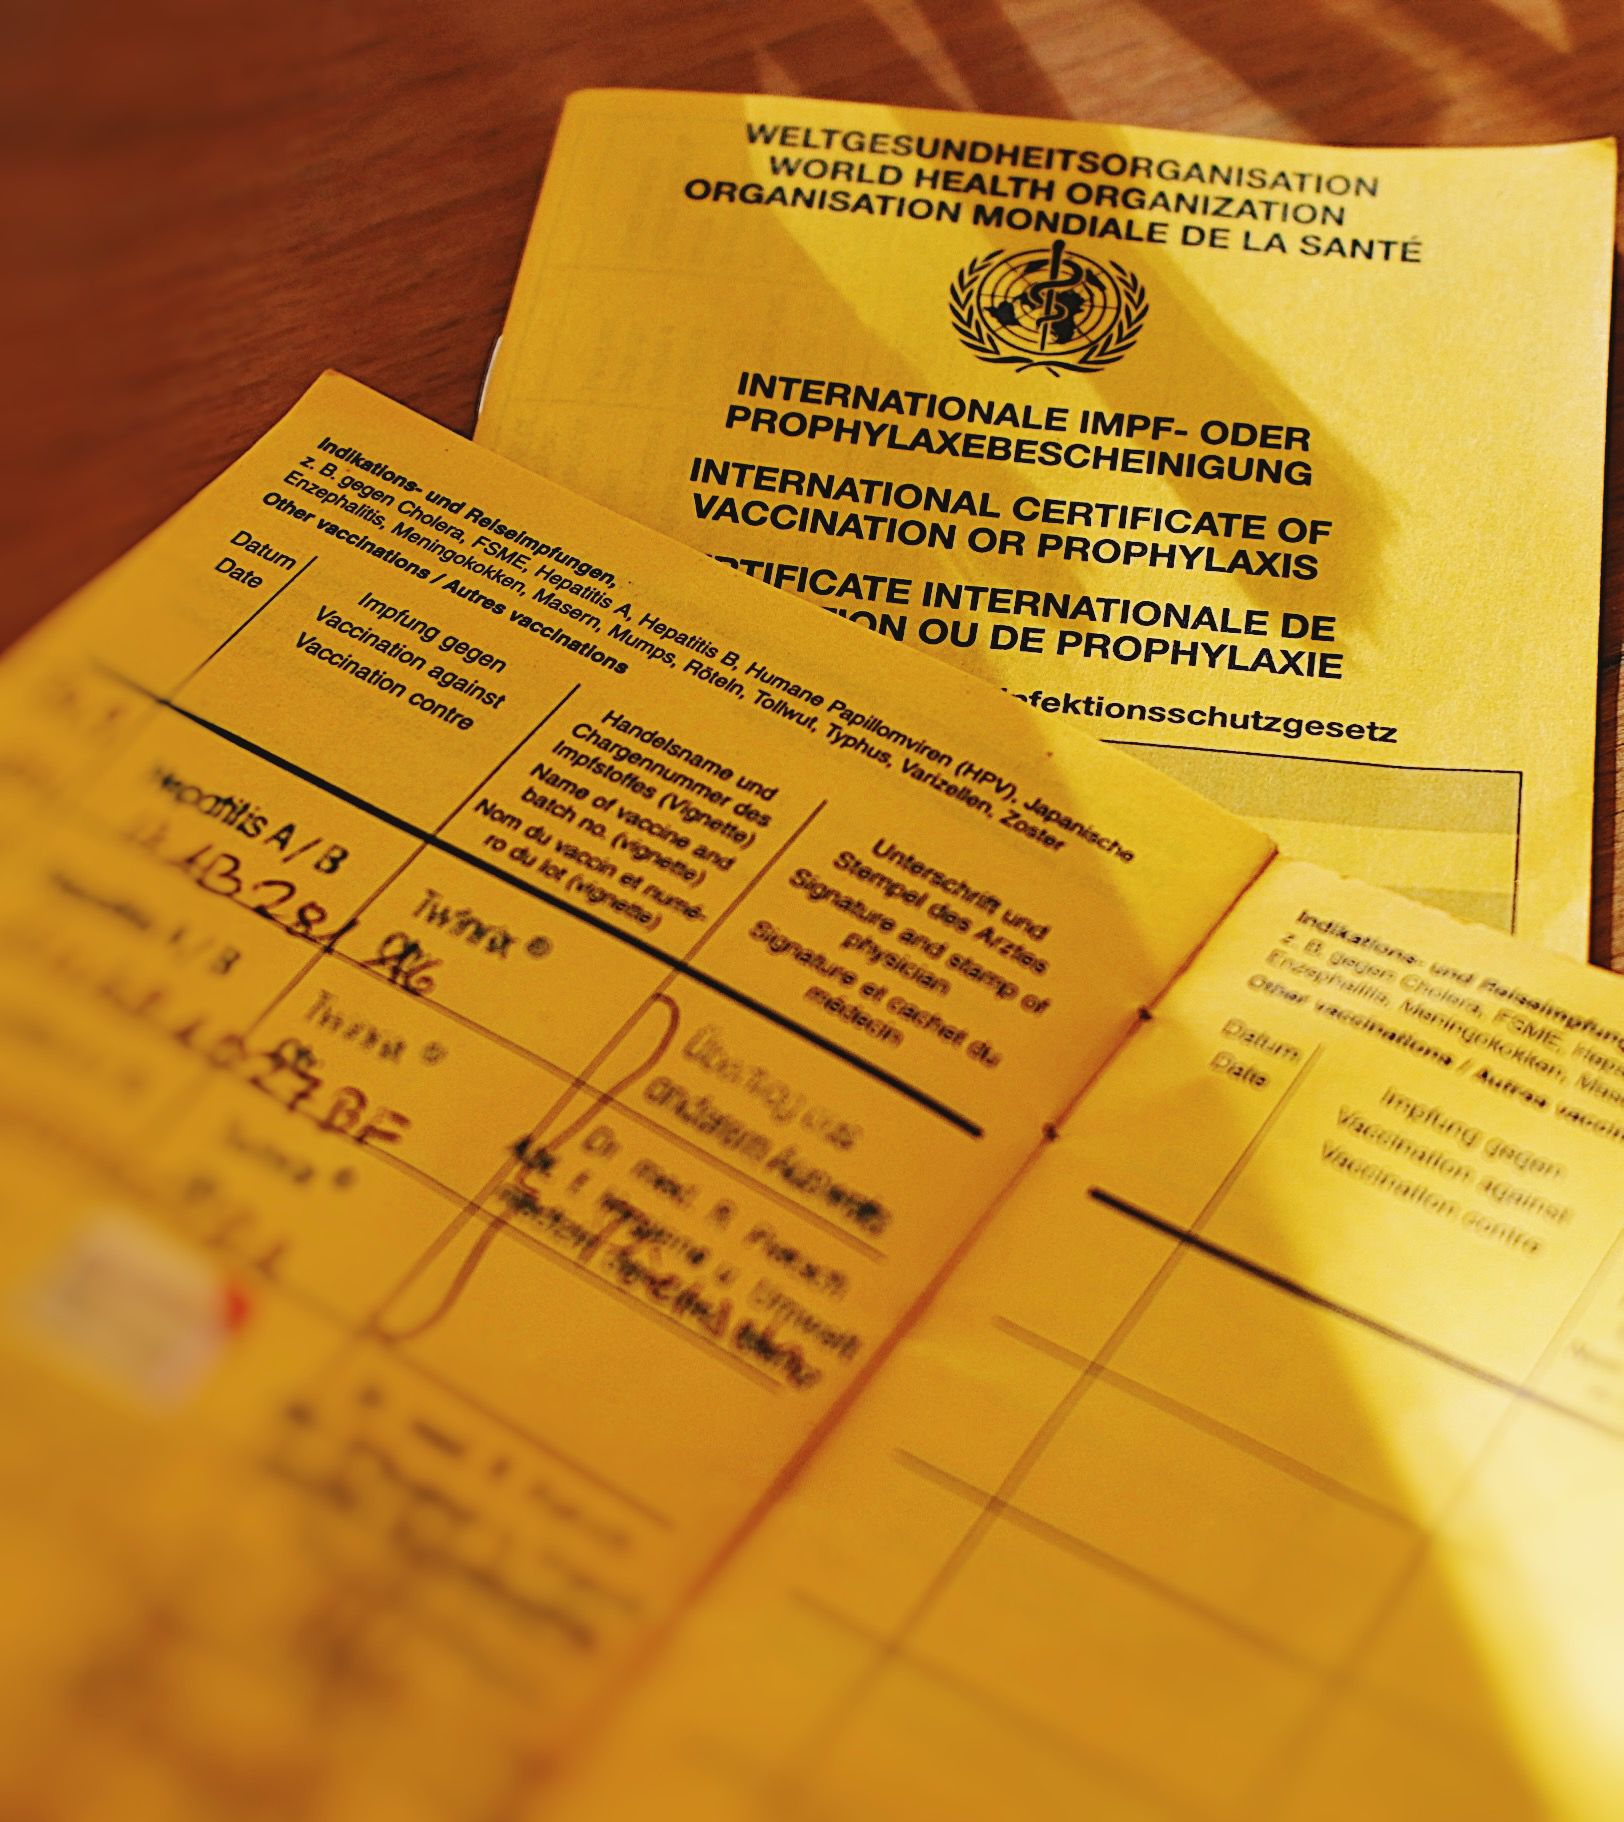 WELTGESUNDHEITSORGANISATION
WORLD HEALTH ORGANIZATION
ORGANISATION MONDIALE DE LA SANTÉ
INTERNATIONALE IMPF- ODER
PROPHYLAXEBESCHEINIGUNG
INTERNATIONAL CERTIFICATE OF
VACCINATION OR PROPHYLAXIS
RTIFICATE INTERNATIONALE DE
ION OU DE PROPHYLAXIE
nfektionsschutzgesetz
Indikations- und Reiseimpfungen,
z. B. gegen Cholera, FSME, Hepatitis A, Hepatitis B, Humane Papillomviren (HPV), Japanische
Enzephalitis, Meningokokken, Masern, Mumps, Röteln, Tollwut, Typhus, Varizellen, Zoster
Other vaccinations / Autres vaccinations
Datum
Date
Impfung gegen
Vaccination against
Vaccination contre
Handelsname und
Chargennummer des
Impfstoffes (Vignette)
Name of vaccine and
batch no. (vignette)
Nom du vaccin et numé-
ro du lot (vignette)
Unterschrift und
Stempel des Arztes
Signature and stamp of
physician
Signature et cachet du
médecin
Hepatitis A / B
Twinrix ®
A / B
Twinrix ®
Dr. med.
Indikations- und Reiseimpfung
z. B. gegen Cholera, FSME, Hepa
Enzephalitis, Meningokokken, Mas
Other vaccinations / Autres vaccin
Datum
Date
Impfung gegen
Vaccination against
Vaccination contre